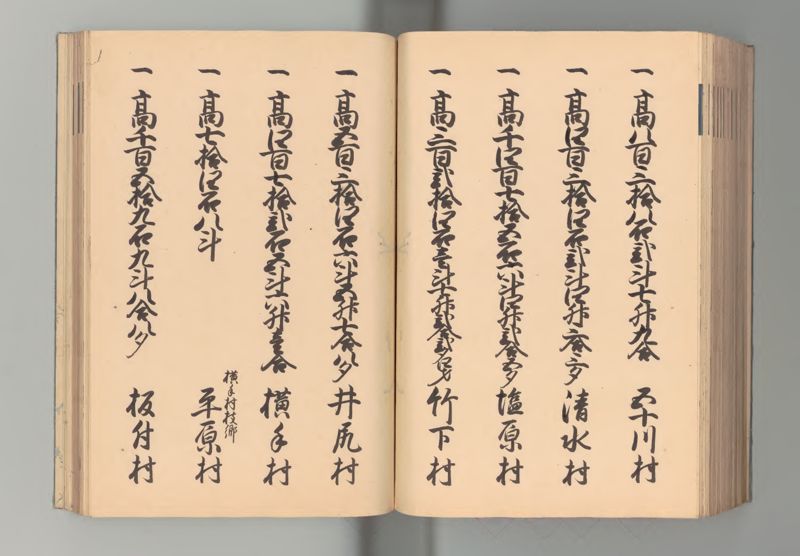 一 高八百三拾八石弐斗七升九合 五十川村
一 高四百三拾四石弐斗四升 合三夕 清水村
一 高千四百七拾五石六斗四升弐合五夕 塩原村
一 高三百弐拾四石壱斗 升弐合弐夕 竹下村
一 高五百三拾四石六斗五升七合八夕 井尻村
一 高四百七拾弐石五斗六升壱合 横手村
一 高七拾四石八斗
横手村枝郷
平原村
一 高千百五拾九石九斗八合八夕 板付村